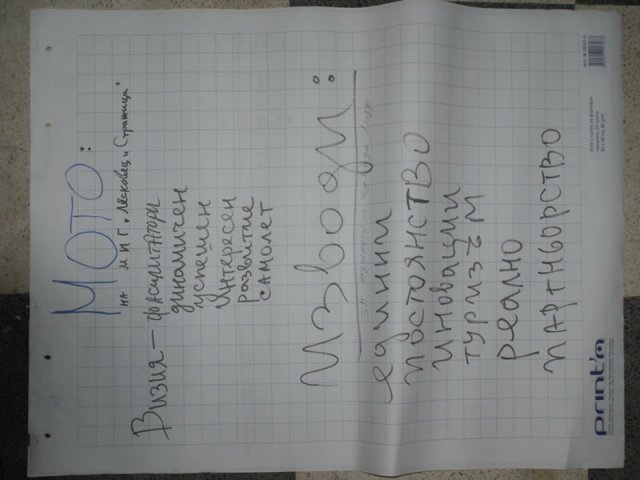 МОТО:
на МИГ „Лясковец и Стражица"
Визия – фасилитатори
динамичен
успешен
Интересен
развитие
самолет
Изводи:
единим
постоянство
иновации
туризъм
реално
партньорство
print'n